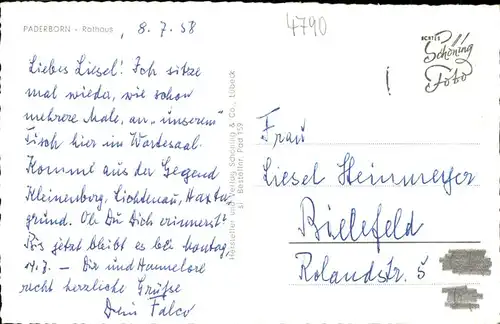 PADERBORN - Rathaus
, 8.7.58
4790
Liebes Liesel! Ich sitze
mal wieder, wie schon
mehrere Male, an „unserem"
Tisch hier im Wartesaal.
Komme aus der Gegend
Kleinenberg, Lichtenau, Haxter
grund. Ob Du Dich erinnerst?
Bis jetzt bleibt es bei Montag,
14.7. – Dir und Hannelore
recht herzliche Grüße
Dein Falco
Hersteller und Verlag Schöning & Co., Lübeck
Bestellnr. Pad 159
ECHTES
Schöning
Foto
Frau
Liesel Heinmeyer
Bielefeld
Rolandstr. 5